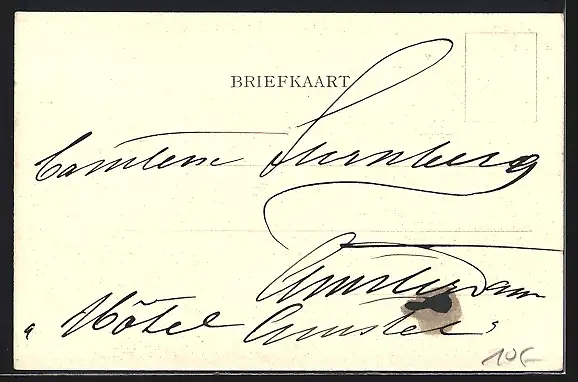 BRIEFKAART
Comtesse Sternberg
Amsterdam
"Hôtel Amstel"
10,-